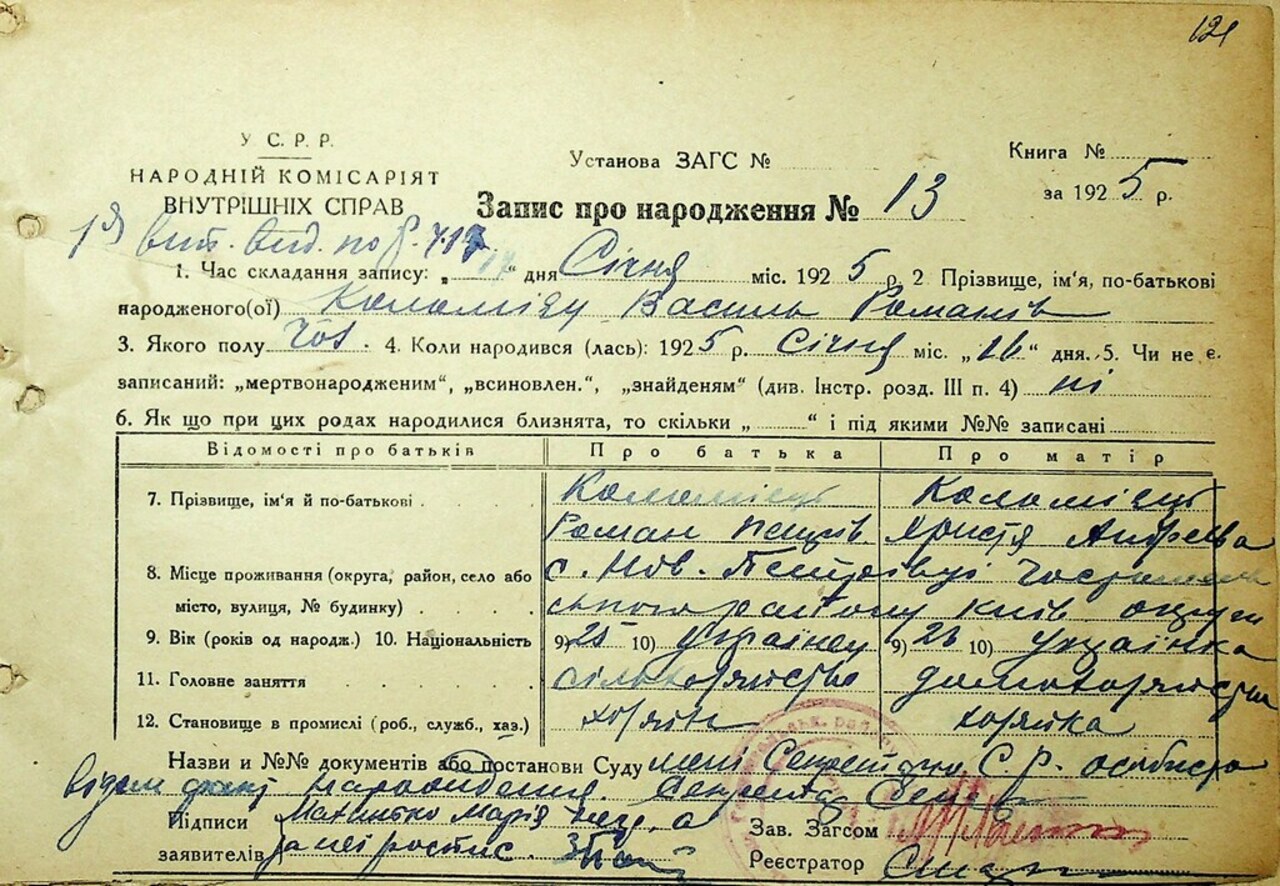 121
У С. Р. Р.
НАРОДНІЙ КОМІСАРІЯТ
ВНУТРІШНІХ СПРАВ
Установа ЗАГС №
Книга №
за 1925 р.
Запис про народження № 13
вид. по
1. Час складання запису: „ “ дня Січня міс. 1925 р. 2 Прізвище, ім'я, по-батькові
народженого(ої) Коломієц Василь Романів
3. Якого полу чол. 4. Коли народився (лась): 1925 р. Січня міс. „16“ дня. 5. Чи не є
записаний: „мертвонародженим“, „всиновлен.“, „знайденям“ (див. Інстр. розд. III п. 4) ні
6. Як що при цих родах народилися близнята, то скільки „ “ і під якими №№ записані
Відомості про батьків Про батька Про матір
7. Прізвище, ім'я й по-батькові Коломієць Коломієць
Роман Петрів Христя Андреєва
8. Місце проживання (округа, район, село або с. Нов. Петрівці Гостомель
місто, вулиця, № будинку) ського району Київ. округи
9. Вік (років од народж.) 10. Національність 9) 25 10) Українец 9) 23 10) Українка
11. Головне заняття сільхозяйство домохозяйства
12. Становище в промислі (роб., служб., хаз.) хозяїн хозяйка
Назви и №№ документів або постанови Суду мені Секретарю С. Р. особисто
відом факт народження. Секретар
Підписи Марія а
заявителів за неї розпис.
Зав. Загсом
Реєстратор